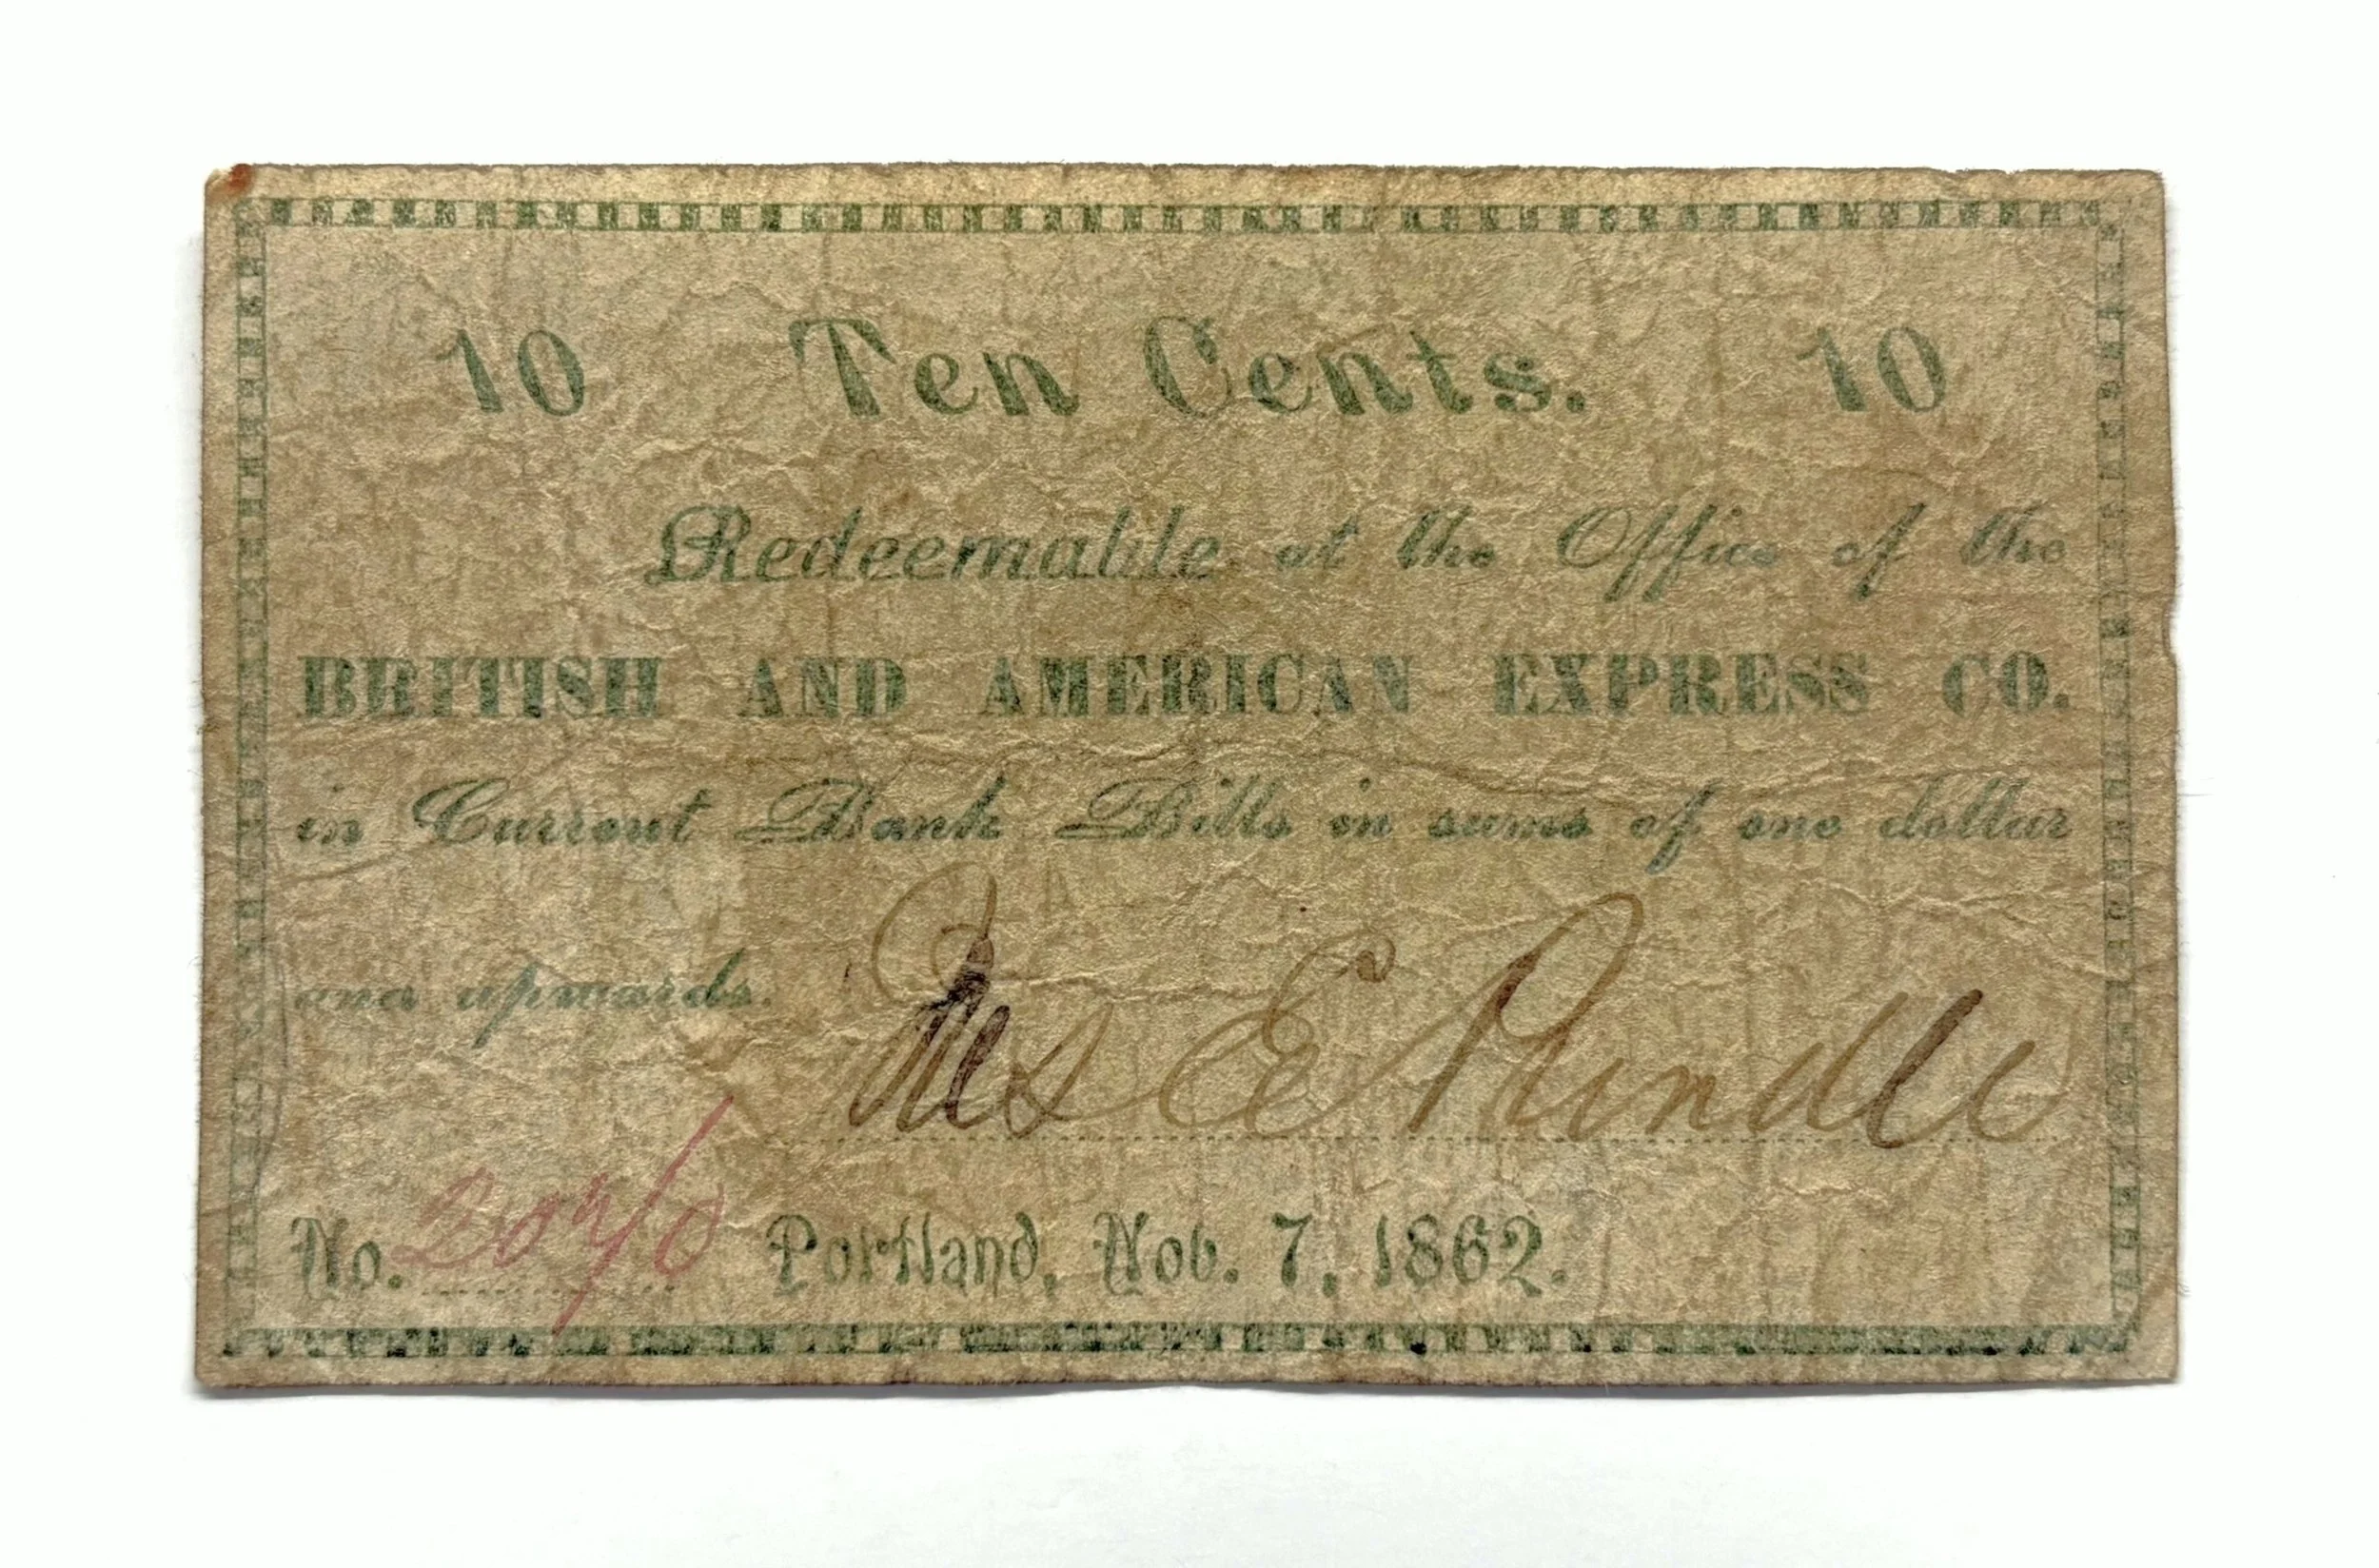 10 Ten Cents. 10
Redeemable at the Office of the
BRITISH AND AMERICAN EXPRESS CO.
in Current Bank Bills in sums of one dollar
and upwards.
E Prindle
No. Portland, Nov. 7, 1862.